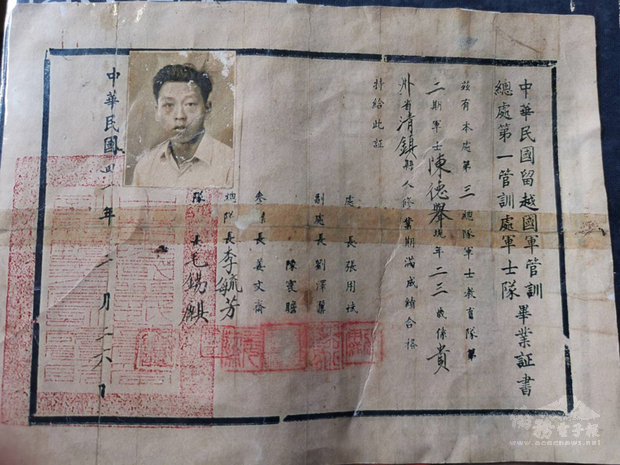 中華民國留越國軍管訓
總處第一管訓處軍士隊
畢業証書
茲有本處第三總隊軍士教育隊第
二期軍士陳德舉現年二三歲係貴
州省清鎮縣人修業期滿成績合格
特給此証
處長張用
副處長劉澤
陳
參謀長姜文斋
總隊長李毓芳
隊長毛錫麒
中華民國四一年二月二六日
僑務電子報
www.ocacnews.net